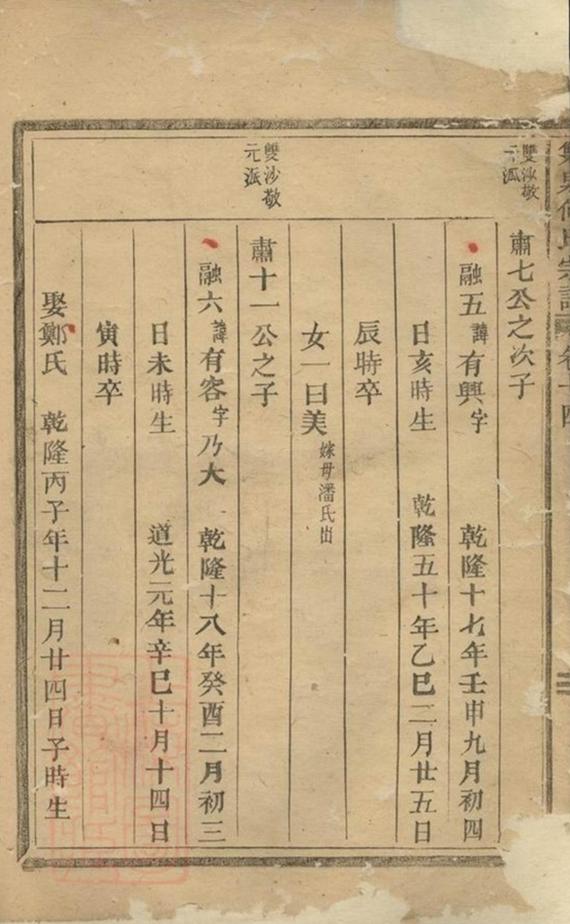 雙沙敬
元派
肅七公之次子
融五諱有興字 乾隆十七年壬申九月初四
日亥時生 乾隆五十年乙巳二月廿五日
辰時卒
女一曰美嫁毋潘氏出
雙沙敬
元派
肅十一公之子
融六諱有容字乃大 乾隆十八年癸酉二月初三
日未時生 道光元年辛巳十月十四日
寅時卒
娶鄭氏 乾隆丙子年十二月廿四日子時生